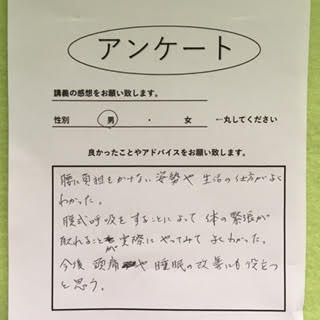 アンケート
講義の感想をお願い致します。
性別 男 ・ 女 ←丸してください
良かったことやアドバイスをお願い致します。
腰に負担をかけない姿勢や 生活の仕方がよく
わかった。
腹式呼吸をすることによって 体の緊張が
取れることが実際にやってみて よくわかった。
今後 頭痛や 睡眠の改善にも役立つ
と思う。